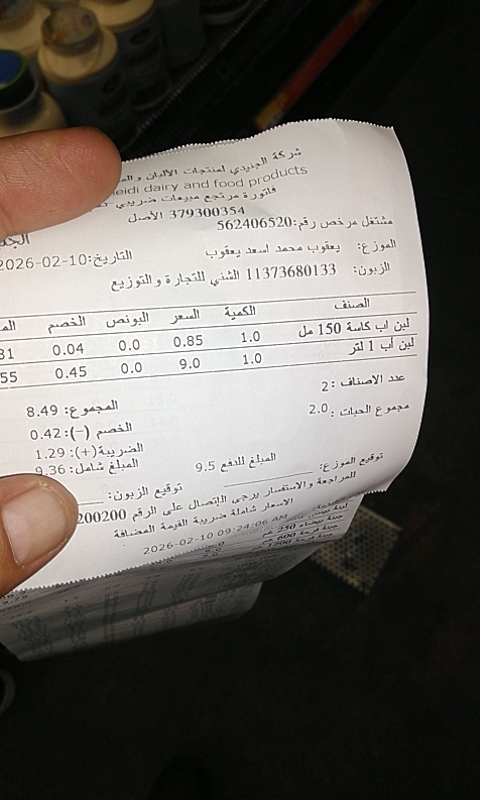 شركة الجنيدي لمنتجات الألبان و
dairy and food products
فاتورة مرتجع مبيعات ضريبي
379300354 الأصل
مشتغل مرخص رقم:562406520
الموزع: يعقوب محمد اسعد يعقوب
التاريخ:2026-02-10
الزبون: 11373680133 الشني للتجارة والتوزيع
الصنف الكمية السعر البونص الخصم
لبن اب كاسة 150 مل 1.0 0.85 0.0 0.04 81
لبن أب 1 لتر 1.0 9.0 0.0 0.45 55
عدد الاصناف :2
المجموع: 8.49
مجموع الحبات :2.0
الخصم (-): 0.42
الضريبة(+): 1.29
المبلغ شامل: 9.36
المبلغ للدفع 9.5
توقيع الموزع:
توقيع الزبون:
للمراجعة والاستفسار يرجى الإتصال على الرقم 200200
الاسعار شاملة ضريبة القيمة المضافة
2026-02-10 09:24:06 AM